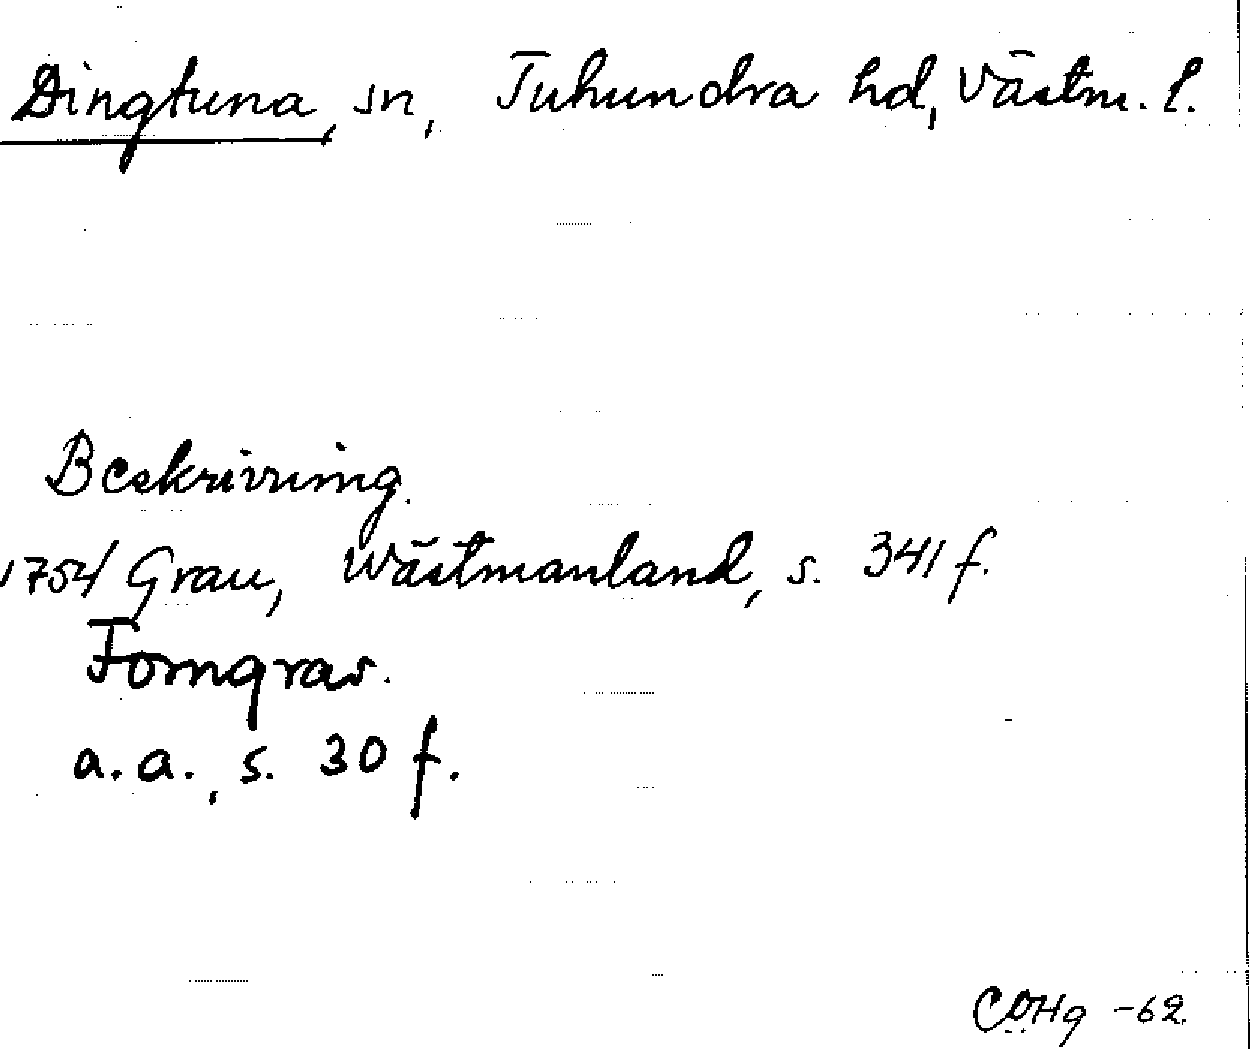 Dingtuna, sn, Tuhundra hd, Västm. l.
Beskrivning.
1754 Grau, Wästmanland, s. 341 f.
Forngrav.
a.a., s. 30 f.
COHg -62.